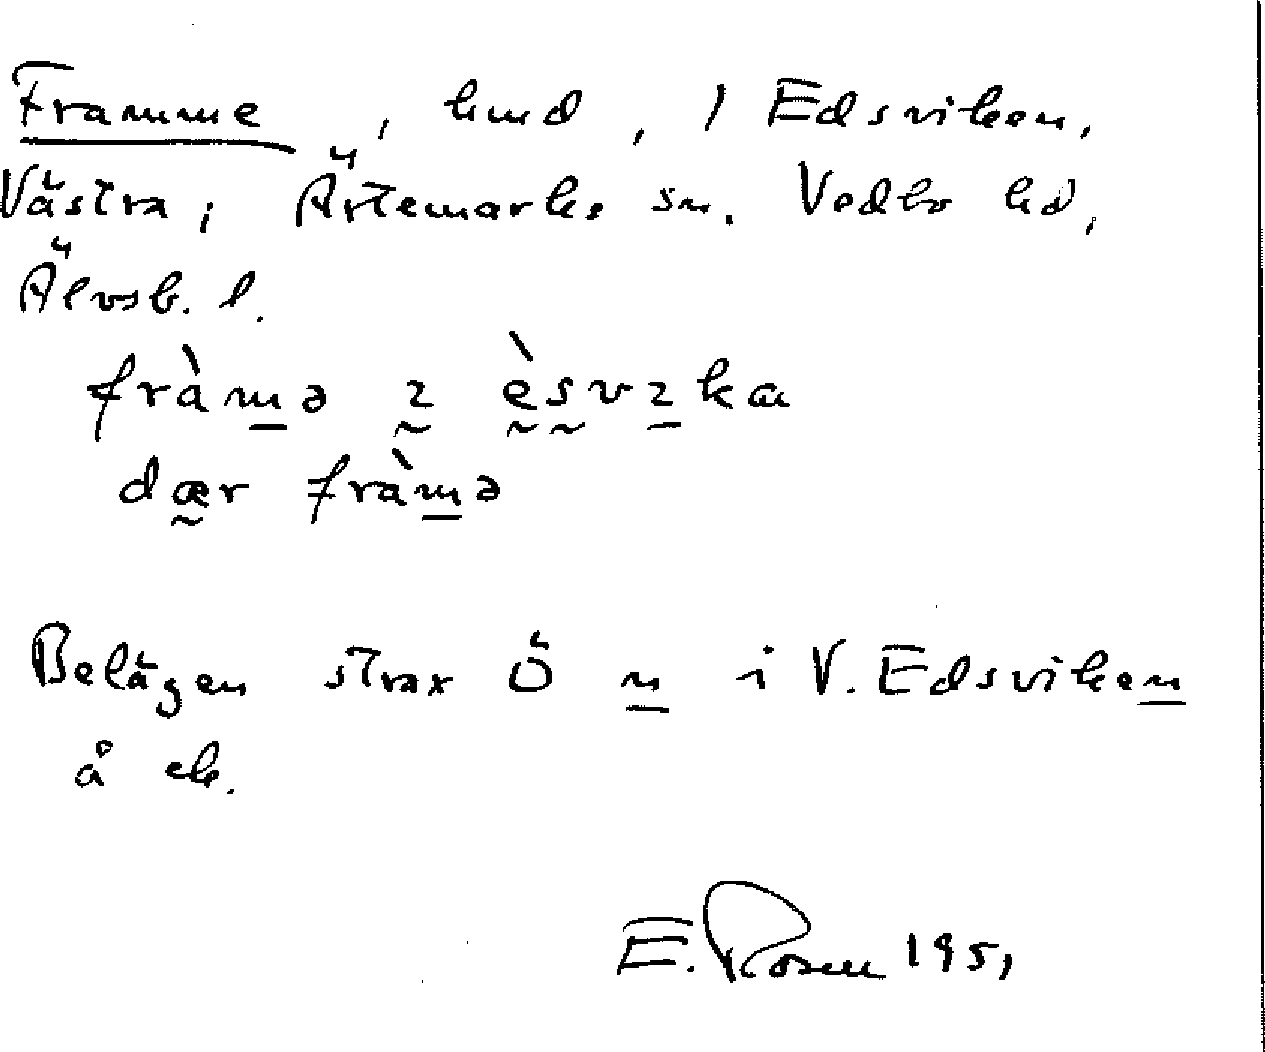 Framme, lund, i Edsviken,
Västra, Ärtemarks sn. Vedbo hd,
Älvsb. l.
fràmə ɪ èsvɪka
dær fràmə
Belägen strax Ö n i V. Edsviken
å ek.
E. Rosen 1951